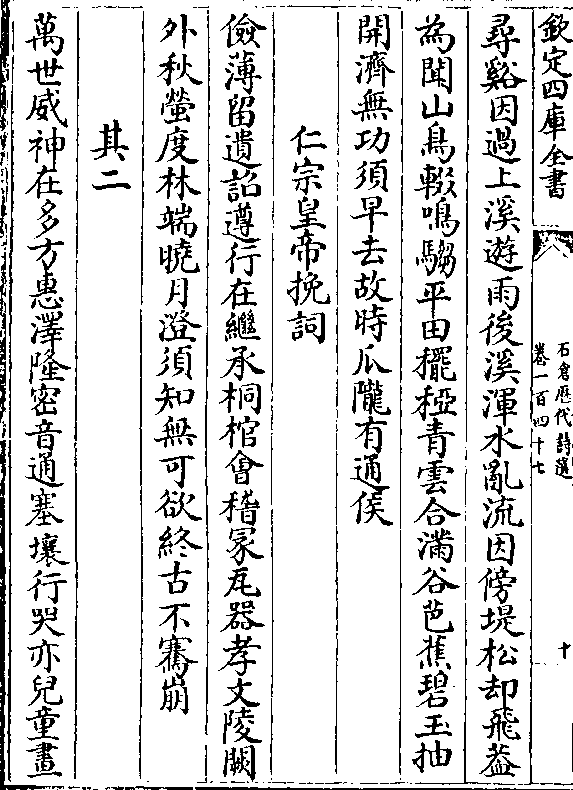 欽定四庫全書
石倉歷代詩選
卷一百四十七
十
尋谿因過上溪遊雨後溪渾水亂流因傍堤松却飛葢
為聞山鳥輟鳴騶平田䆉稏青雲合滿谷芭蕉碧玉抽
開濟無功須早去故時瓜隴有通侯
仁宗皇帝挽詞
儉薄留遺詔遵行在繼承桐棺會稽冢瓦器孝文陵闕
外秋螢度林端曉月澄須知無可欲終古不騫崩
其二
萬世威神在多方惠澤隆密音通塞壤行哭亦兒童畫